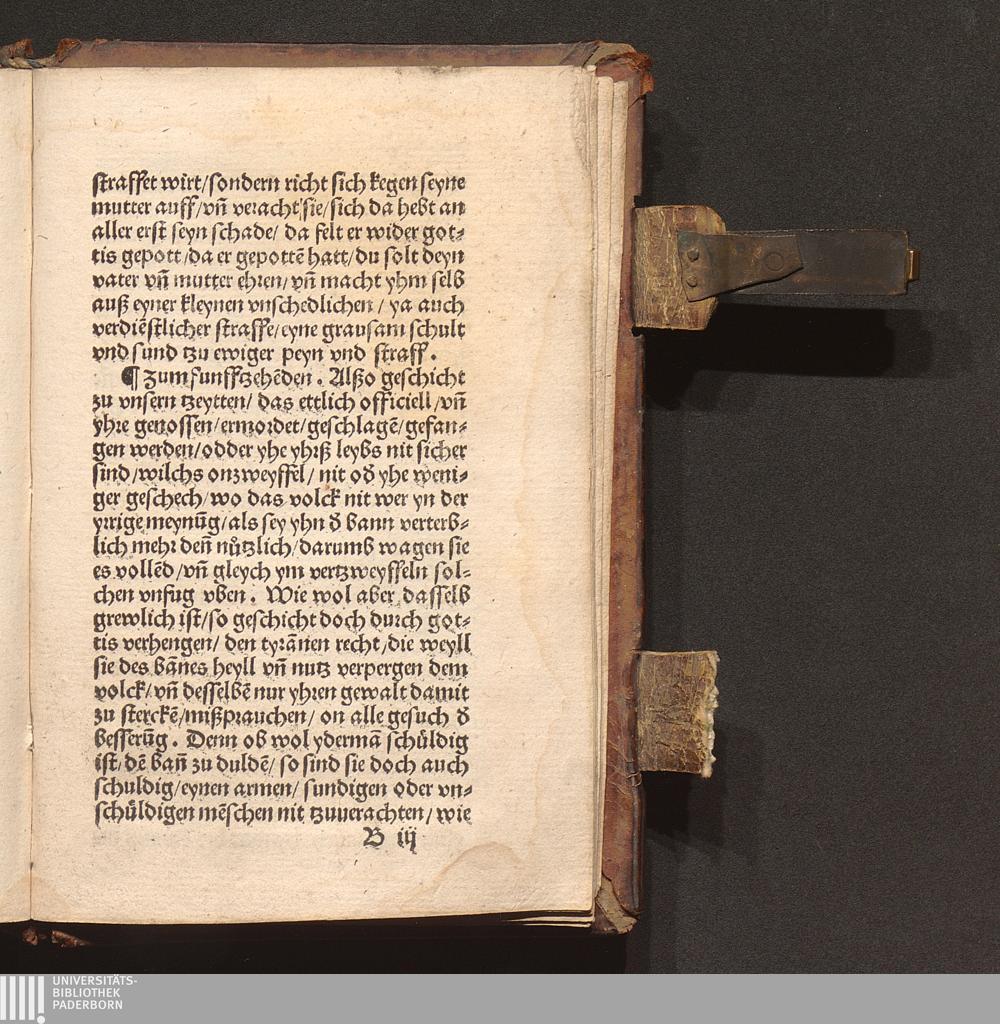 straffet wirt/sondern richt sich kegen seyne
mutter auff/vñ veracht sie/sich da hebt an
aller erst seyn schade/ da felt er wider got⸗
tis gepott/da er gepottē hatt/du solt deyn
vater vñ mutter ehren/vñ macht yhm selb
auß eyner kleynen vnschedlichen/ ya auch
verdiēstlicher straffe/eyne grausam schult
vnd sund tzu ewiger peyn vnd straff.
¶ Zum funfftzehēden. Alßo geschicht
zu vnsern tzeytten/ das ettlich officiell/vñ
yhre genossen/ermordet/geschlagē/gefan⸗
gen werden/odder yhe yhrß leybs nit sicher
sind/wilchs onzweyffel/ nit ođ yhe weni⸗
ger geschech/wo das volck nit wer yn der
yrrige meynūg/als sey yhn đ bann verterb⸗
lich mehr deñ nůtzlich/darumb wagen sie
es vollēd/vñ gleych ym vertzweyffeln sol⸗
chen vnfug vben. Wie wol aber dasselb
grewlich ist/so geschicht doch durch got⸗
tis verhengen/ den tyrānen recht/die weyll
sie des bānes heyll vñ nutz verpergen dem
volck/vñ desselbē nur yhren gewalt damit
zu sterckē/mißprauchen/ on alle gesuch đ
besserūg. Denn ob wol ydermā schůldig
ist/dē bañ zu duldē/so sind sie doch auch
schuldig/eynen armen/ sundigen oder vn⸗
schůldigen mēschen nit tzuuerachten/wie
B iij
UNIVERSITÄTS-
BIBLIOTHEK
PADERBORN